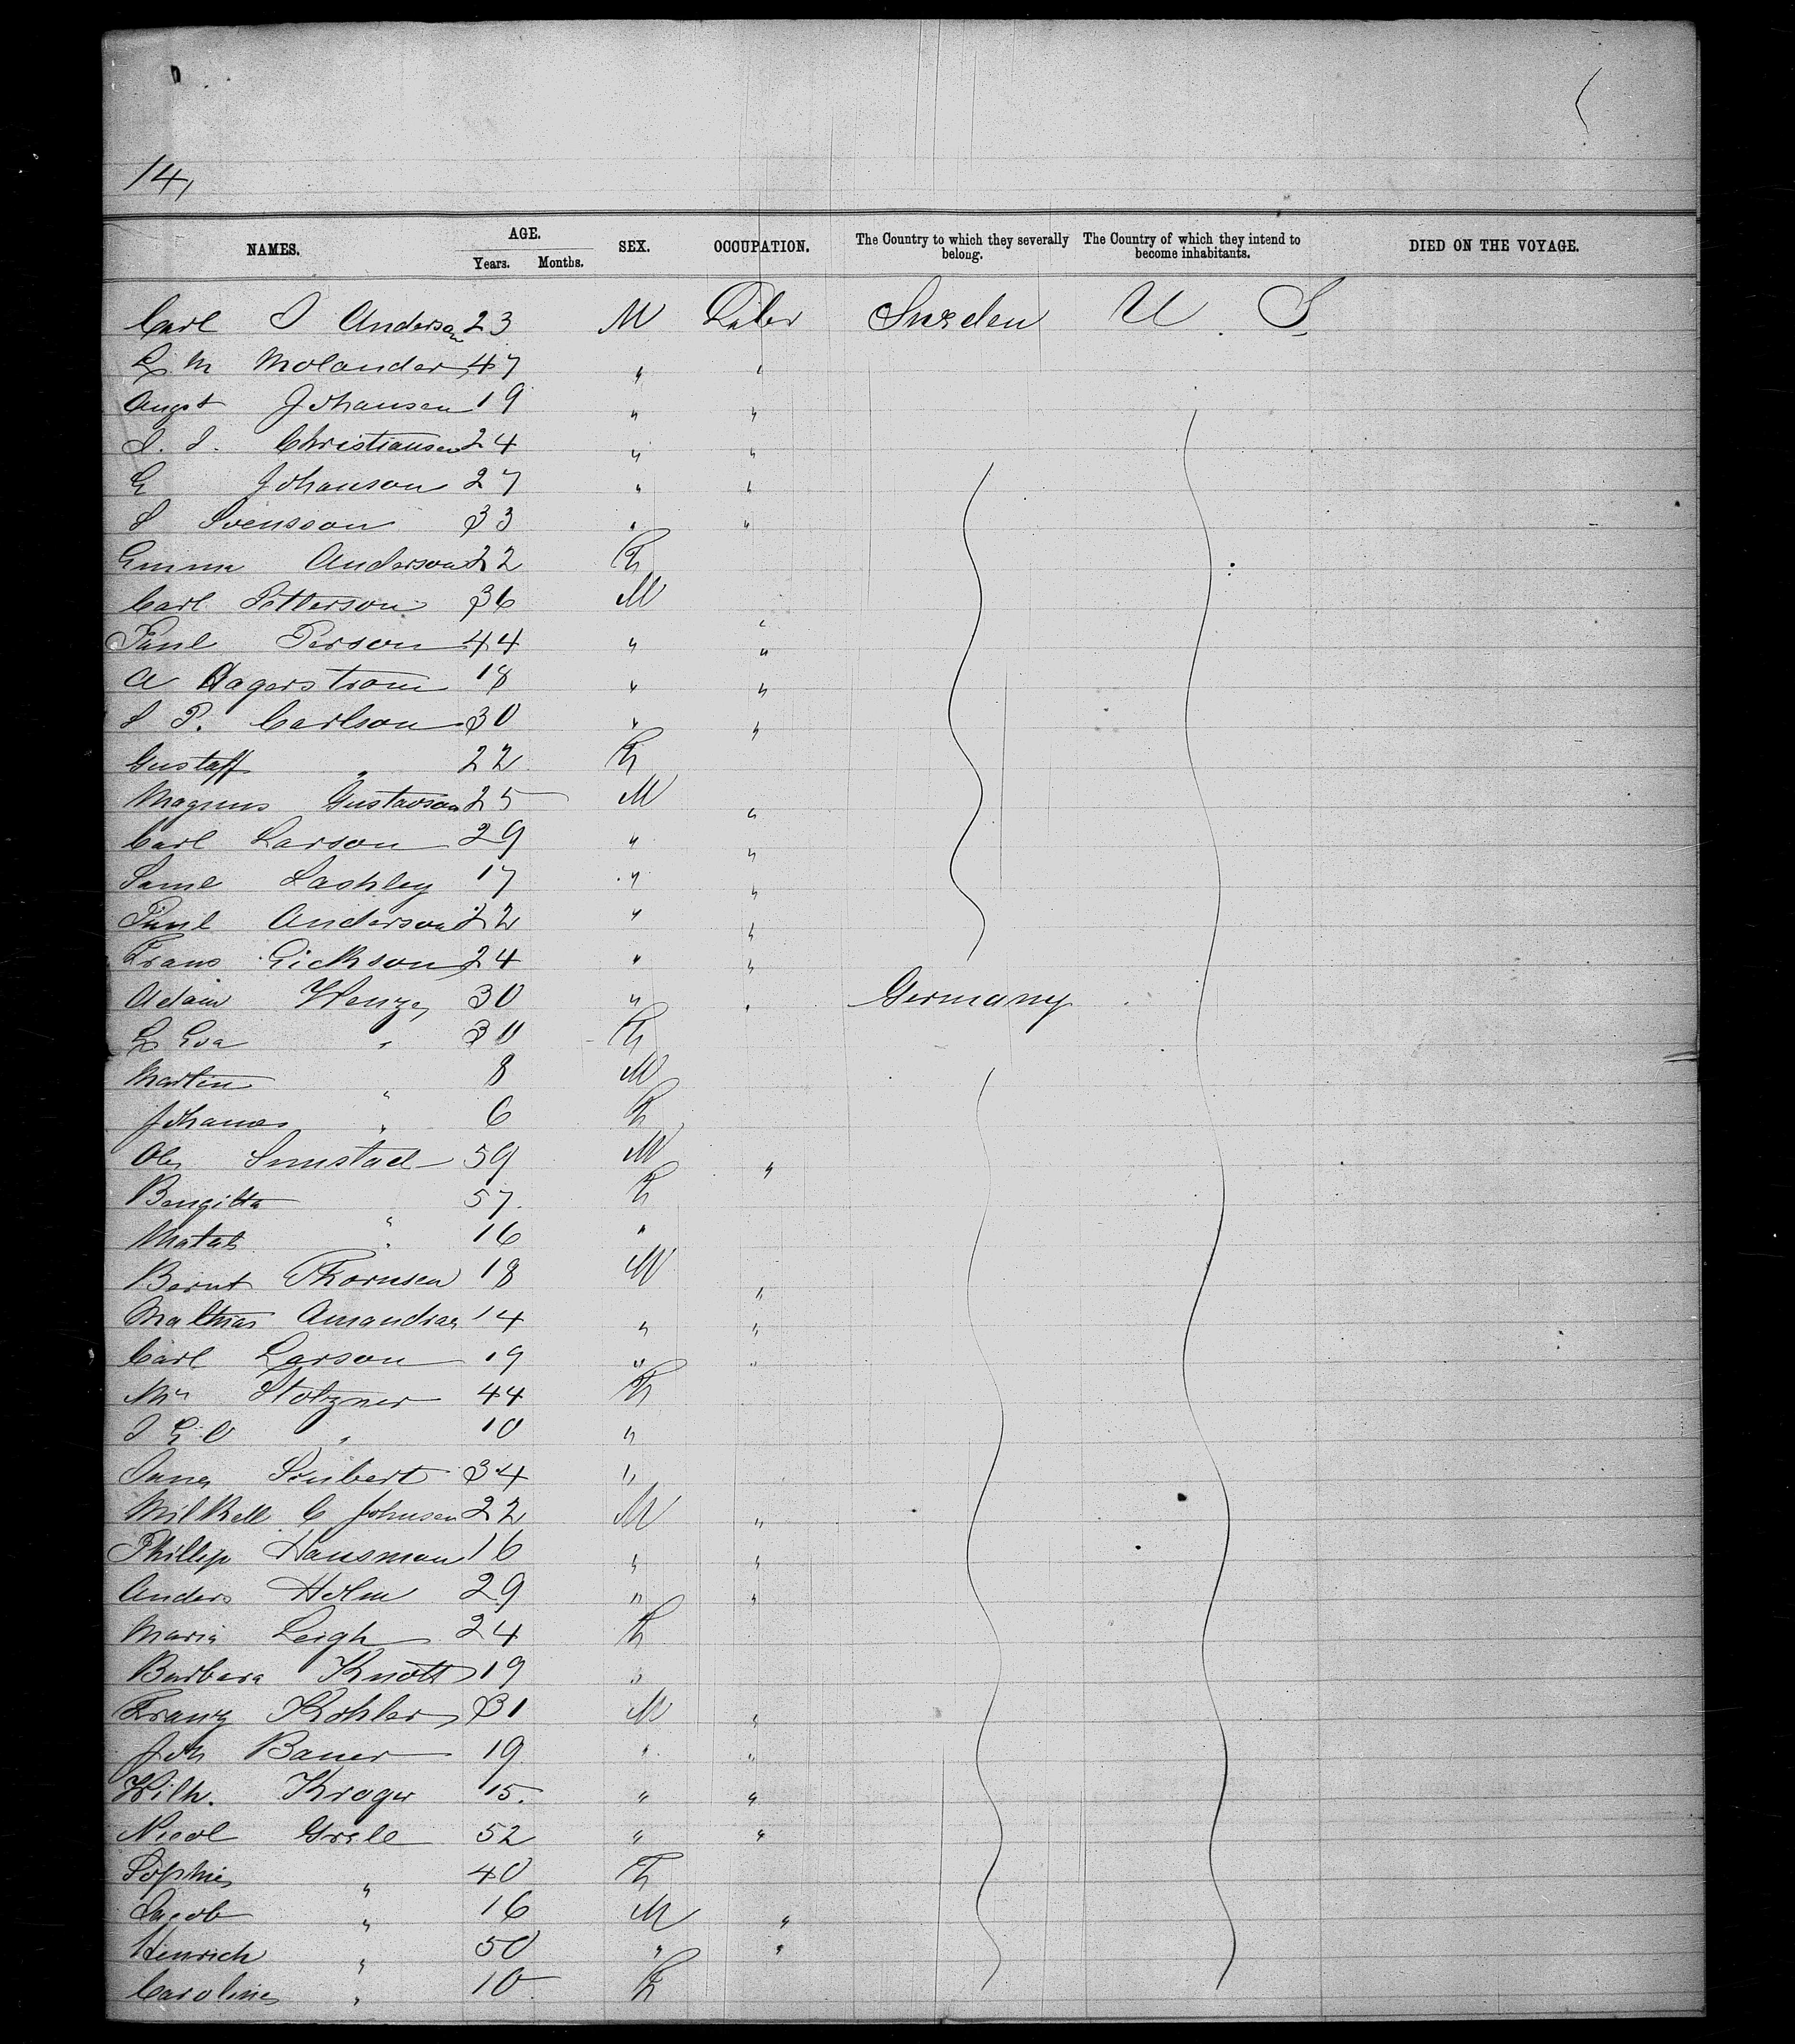 14,
NAMES. AGE. Years. Months. SEX. OCCUPATION. The Country to which they severally belong. The Country of which they intend to become inhabitants. DIED ON THE VOYAGE.
Carl J Anderson 23 M Labor Sweden U. S.
L M Molander 47 " "
Augst Johansen 19 " "
J. J. Christiansen 24 " "
G Johanson 27 " "
S Svensson 33 " "
Emma Anderson 22 F
Carl Petterson 36 M "
Paul Person 44 " "
A Hagerstrom 18 " "
S P. Carlson 30 " "
Gustaff " 22 F
Magnus Gustavson 25 M "
Carl Larson 29 " "
Saml Lashley 17 " "
Paul Anderson 22 " "
Frans Erickson 24 " "
Adam Wenze 30 " " Germany
Eva " 30 F
Martin " 8 M
Johannes " 6 F
Ole 59 M "
Bengitta " 57 F
" 16 "
Bernt Thornsen 18 M "
Mathias 14 " "
Carl Larson 19 " "
Mrs Stolzner 44 F
" 10 "
Anna 34 "
C Johnsen 22 M "
Phillip Hausman 16 " "
Anders Holm 29 " "
Maria Leigh 24 F
Barbara Knott 19 "
Franz Kohler 31 M "
Joh Bauer 19 " "
Wilh. Kroger 15 " "
Nicol 52 " "
Sophie " 40 F
Jacob " 16 M "
Heinrich " 50 " "
Caroline " 10 F